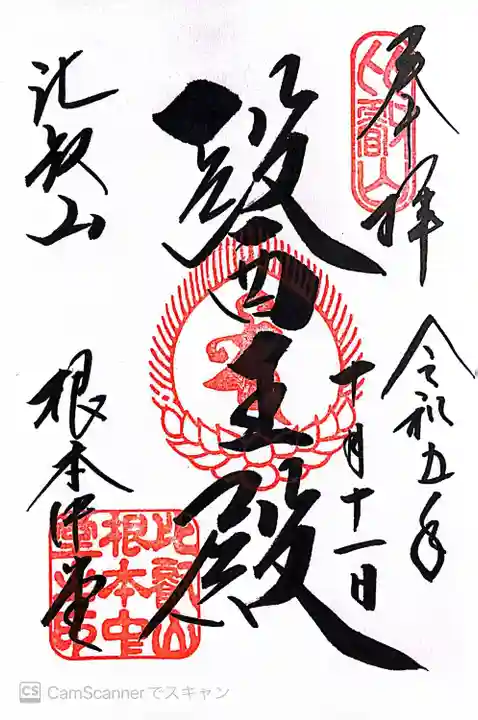 奉拝
比叡山
令和五年
十月十一日
醫王殿
比叡山
根本中堂
比叡山
根本中
堂之印
CS CamScannerでスキャン